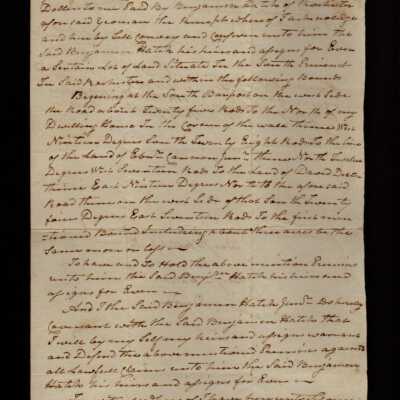 Dollers to me Paid By Benjamin Hatch of Rochester
aforesaid Yeoman the Receipt whereof I acknowledge
and hereby Sell convey and Confirm unto him the
Said Benjamin Hatch his heirs and assigns for Ever
a Certain Lot of Land Situate In the South Precinct
In Said Rochester and within the following Bounds
Begining at the South Bound on the west Side
the Road about Twenty five Rods To the North of my
Dwelling House In the Corner of the wall thence West
Nineteen Degrees South Twenty Eight Rods To the line
of the Land of Cannon Junr thence North Twelve
Degrees West Seventeen Rods To the Land of David
thence East Nineteen Degrees North to the afore said
Road thence on the west Side of that South Twenty
four Degrees East Seventeen Rods To the first men
tioned Bound Including about three acres be the
same more or less
To have and To Hold the above mention Premises
unto him the Said Benjn Hatch his heirs and
assigns for Ever
And I the Said Benjamin Hatch Junr Do hereby
Covenant with the Said Benjamin Hatch that
I will by my Self my heirs and assigns warrant
and Defend the above mentioned Premises against
all Lawfull Claims unto him the Said Benjamin
Hatch his heirs and assigns for Ever
In witness whereof I have hereunto